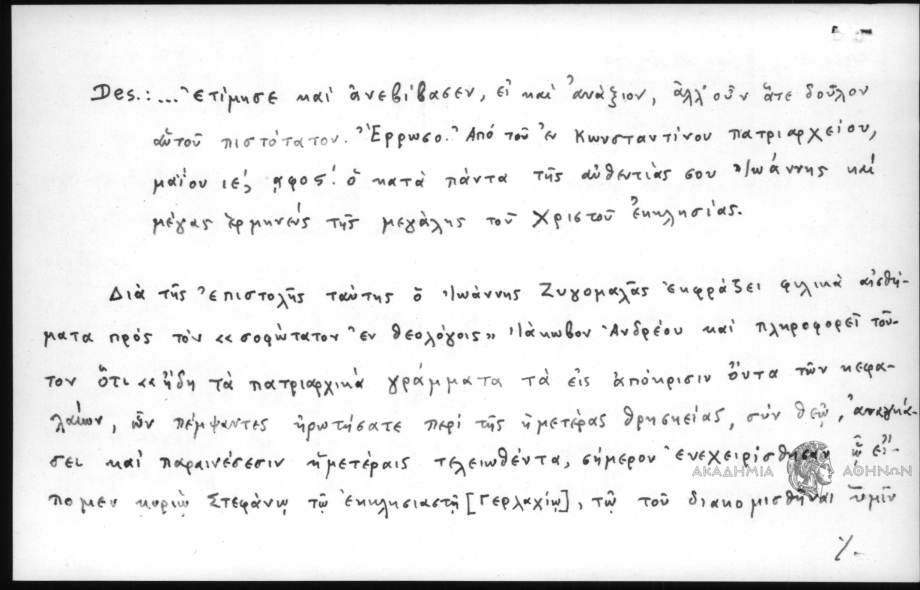 Des.: ... ἐτίμησε καὶ ἀνεβίβασεν, εἰ καὶ ἀνάξιον, ἀλλ' οὖν ἅτε δοῦλον
αὐτοῦ πιστότατον. Ἔρρωσο. Ἀπὸ τοῦ ἐν Κωνσταντίνου πατριαρχείου,
μαΐου ιέ, ͵αφοϛ΄. ὁ κατὰ πάντα τῆς αὐθεντίας σου Ἰωάννης καὶ
μέγας ἑρμηνεὺς τῆς μεγάλης τοῦ Χριστοῦ ἐκκλησίας.
Διὰ τῆς ἐπιστολῆς ταύτης ὁ Ἰωάννης Ζυγομαλᾶς ἐκφράζει φιλικὰ αἰσθή-
ματα πρὸς τὸν «σοφώτατον ἐν θεολόγοις» Ἰάκωβον Ἀνδρέου καὶ πληροφορεῖ τοῦ-
τον ὅτι «ἤδη τὰ πατριαρχικὰ γράμματα τὰ εἰς ἀπόκρισιν ὄντα τῶν κεφα-
λαίων, ὧν πέμψαντες ἠρωτήσατε περὶ τῆς ἡμετέρας θρησκείας, σὺν θεῷ, ἀναγκά-
σει καὶ παραινέσεσιν ἡμετέραις τελειωθέντα, σήμερον ἐνεχειρίσθησαν ᾧ εἴ-
πομεν κυρίῳ Στεφάνῳ τῷ ἐκκλησιαστῇ [Γερλαχίῳ], τῷ τοῦ διακομισθῆναι ὑμῖν
%-
ΑΚΑΔΗΜΙΑ ΑΘΗΝΩΝ